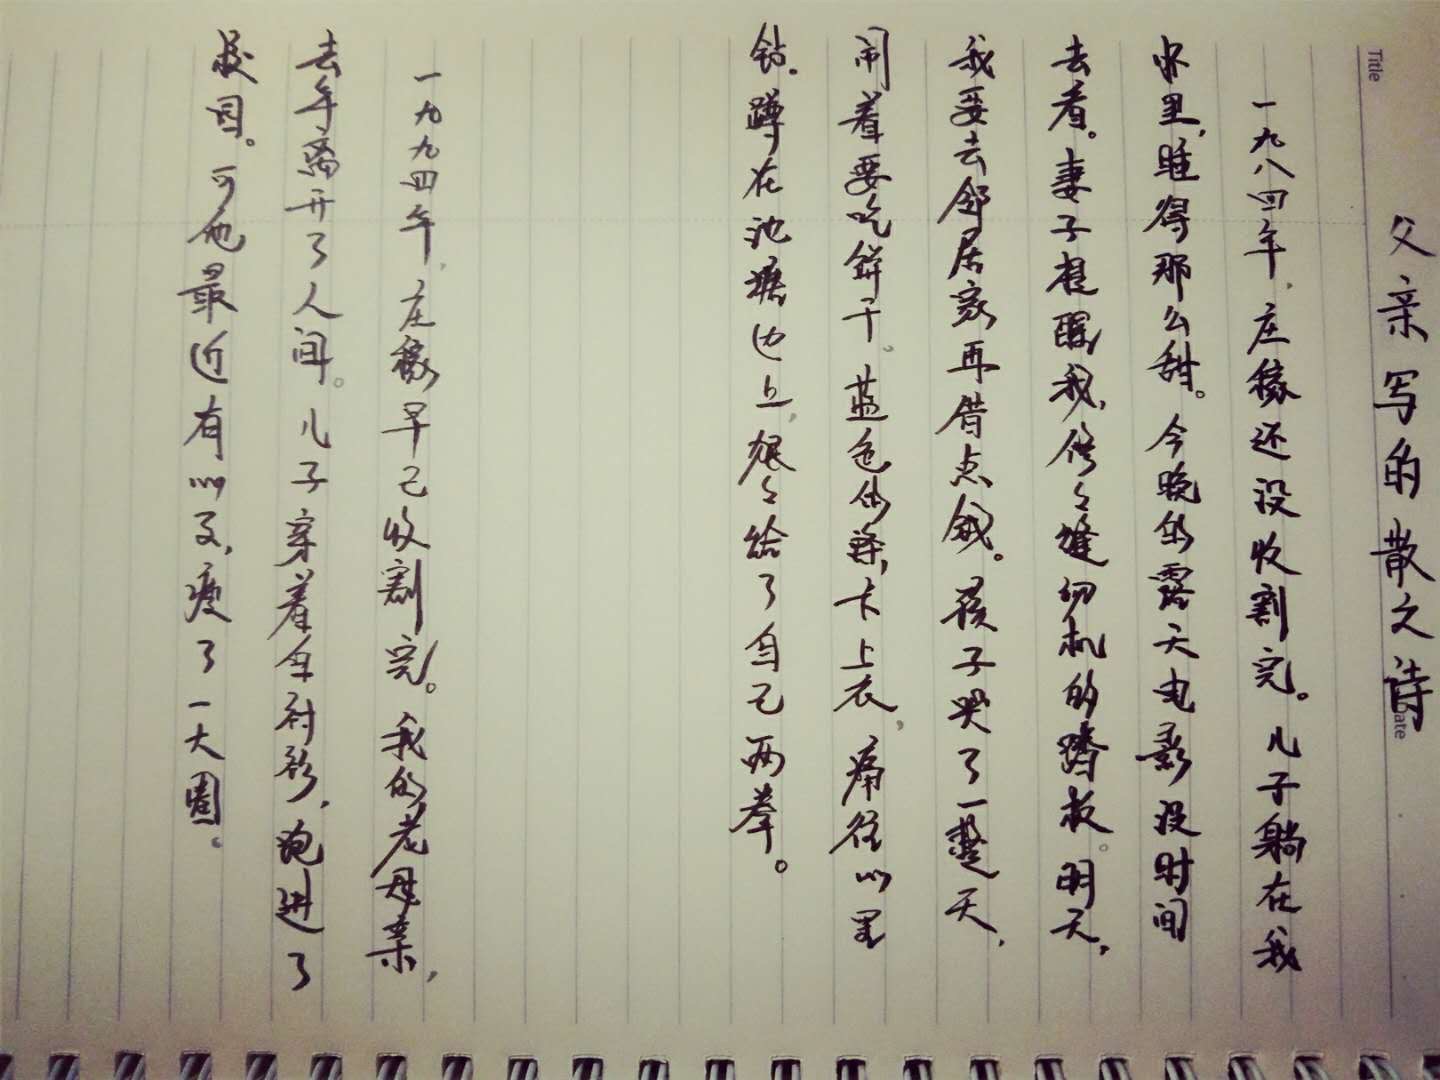 Title
Date
父亲写的散文诗
一九八四年，庄稼还没收割完。儿子躺在我
怀里，睡得那么甜。今晚的露天电影没时间
去看。妻子提醒我，修々缝纫机的踏板。明天，
我要去邻居家再借点钱。孩子哭了一整天，
闹着要吃饼干。蓝色的涤卡上衣，痛往心里
钻。蹲在池塘边上，狠々给了自己两拳。
一九九四年，庄稼早已收割完。我的老母亲，
去年离开了人间。儿子穿着白衬衫，跑进了
校园。可他最近有心事，瘦了一大圈。